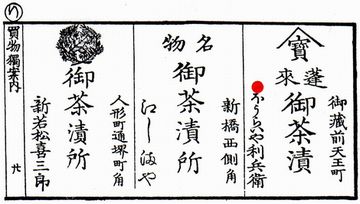 御蔵前天王町
寳
蓬来
御茶漬
ほうらいや利兵衛
新橋西側角
名物
御茶漬所
江しまや
人形町通堺町角
御茶漬所
新若松喜三郎
買物獨案内